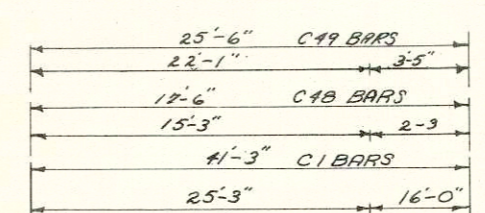 25'-6" C49 BARS
22'-1" 3'-5"
17'-6" C48 BARS
15'-3" 2-3
41'-3" C1 BARS
25'-3" 16'-0"